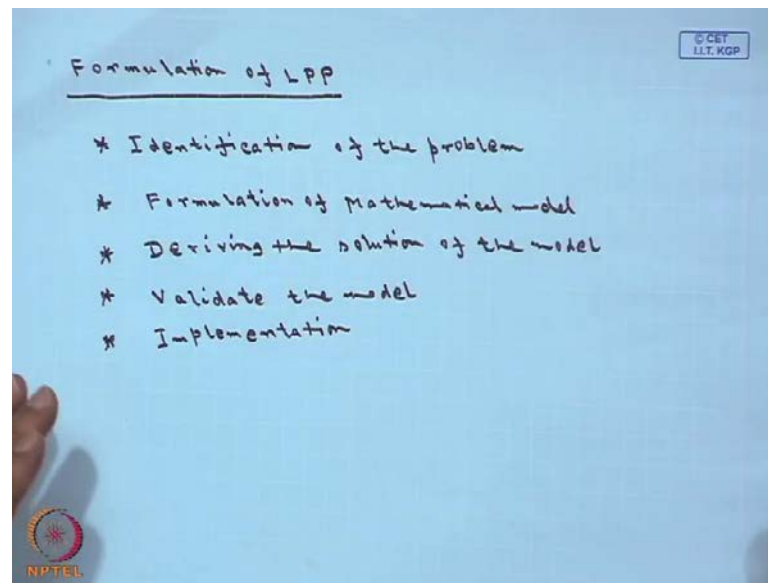 © CET
I.I.T. KGP
Formulation of LPP
* Identification of the problem
* Formulation of Mathematical model
* Deriving the solution of the model
* Validate the model
* Implementation
NPTEL